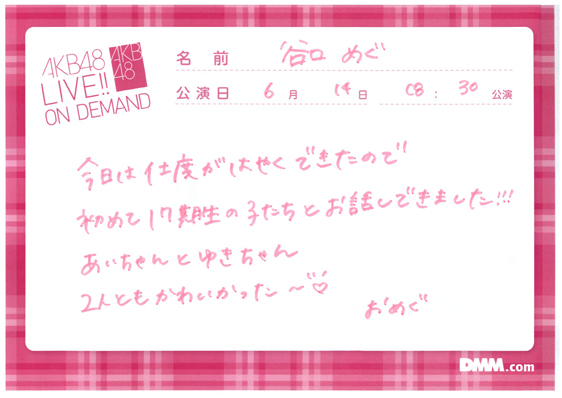 AKB48
LIVE!!
ON DEMAND
AKB
48
名前 谷口 めぐ
公演日 6月 14日 08:30 公演
今日は仕度がはやくできたので
初めて17期生の子たちとお話しできました!!!
あいちゃんとゆきちゃん
2人ともかわいかった〜♡
おめぐ
DMM.com